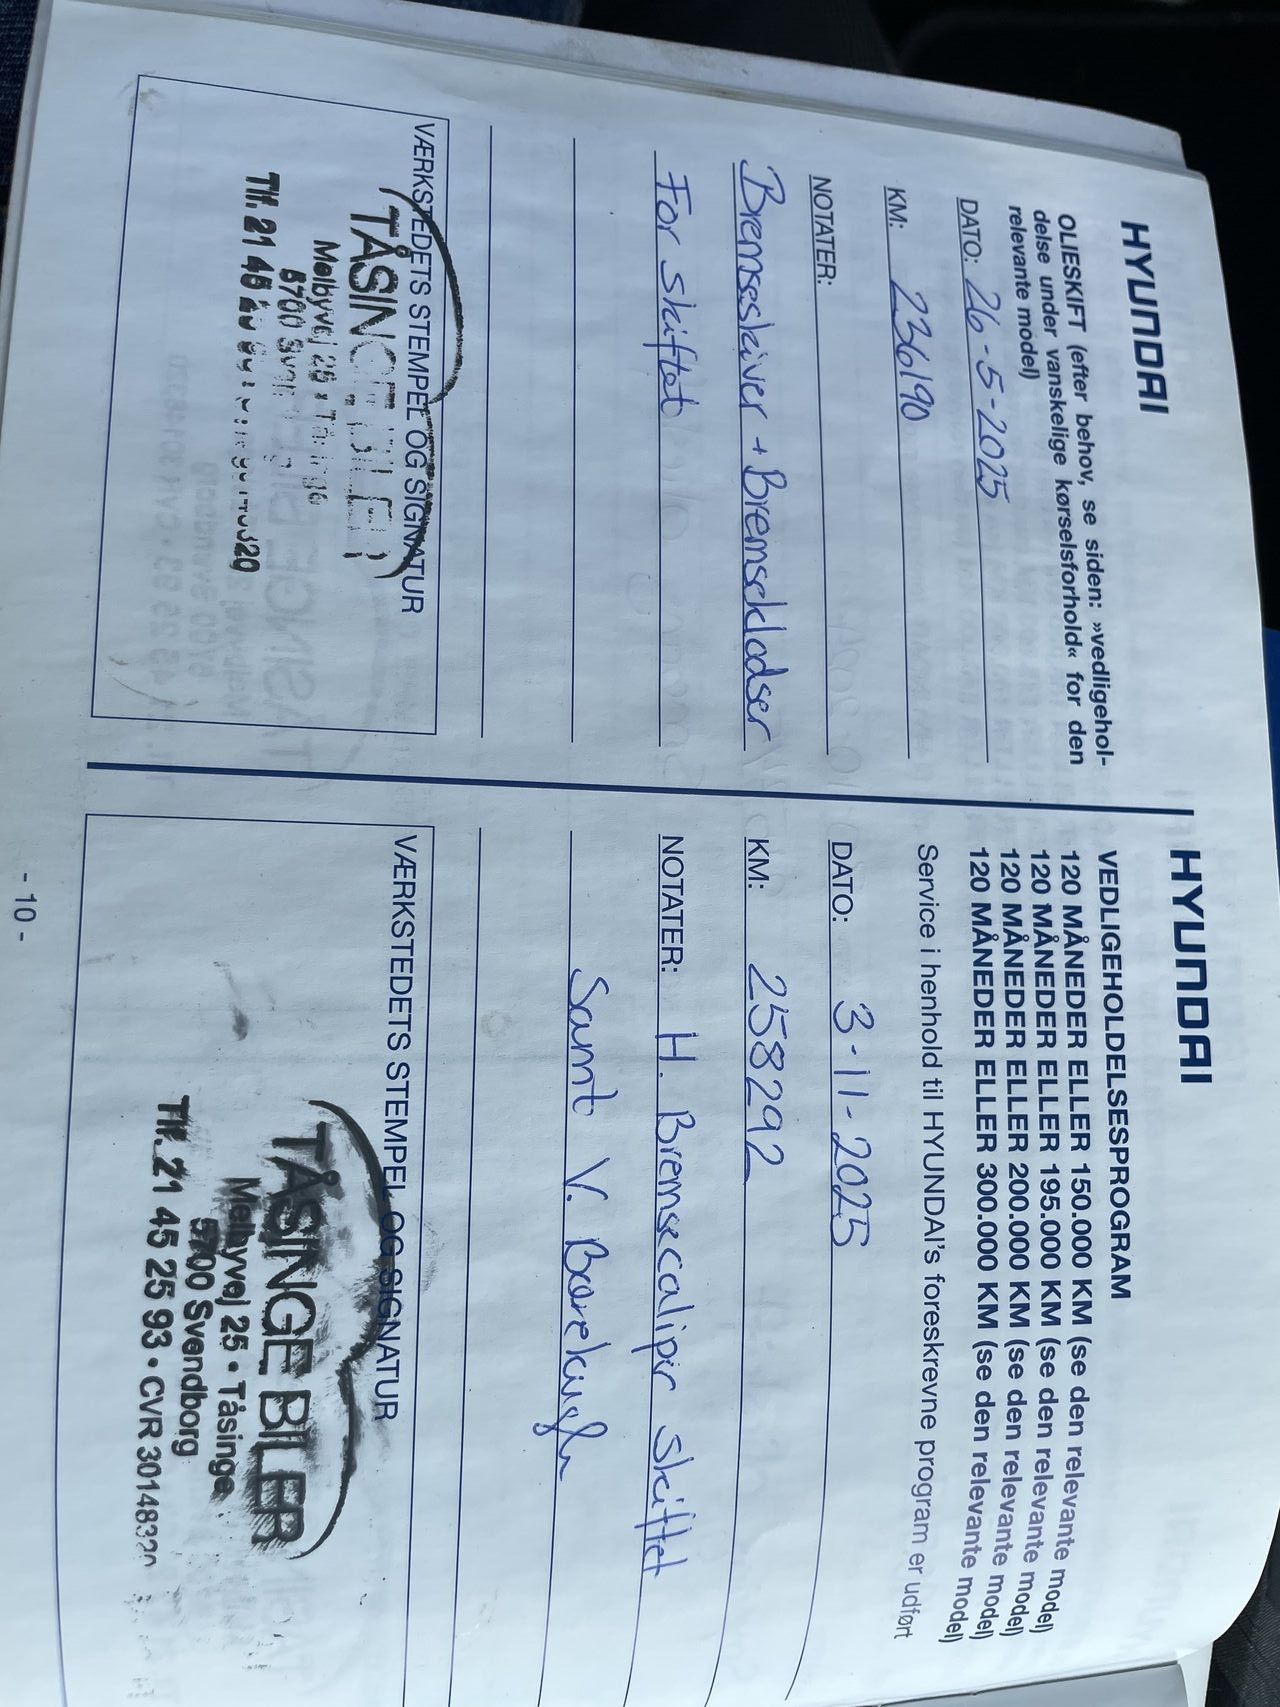 HYUNDAI
OLIESKIFT (efter behov, se siden: »vedligehol-
delse under vanskelige kørselsforhold« for den
relevante model)
DATO: 26-5-2025
KM: 236190
NOTATER:
Bremseskiver + Bremseklodser
For skiftet
VÆRKSTEDETS STEMPEL OG SIGNATUR
TÅSINGE BILER
Melbyvej 25 • Tåsinge
5700 Sven
Tlf. 21 45
HYUNDAI
VEDLIGEHOLDELSESPROGRAM
120 MÅNEDER ELLER 150.000 KM (se den relevante model)
120 MÅNEDER ELLER 195.000 KM (se den relevante model)
120 MÅNEDER ELLER 200.000 KM (se den relevante model)
120 MÅNEDER ELLER 300.000 KM (se den relevante model)
Service i henhold til HYUNDAI's foreskrevne program er udført
DATO: 3-11-2025
KM: 258292
NOTATER: H. Bremsecaliper skiftet
Samt V. Bærekugle
VÆRKSTEDETS STEMPEL OG SIGNATUR
TÅSINGE BILER
Melbyvej 25 • Tåsinge
5700 Svendborg
Tlf. 21 45 25 93 • CVR 30148320
- 10 -